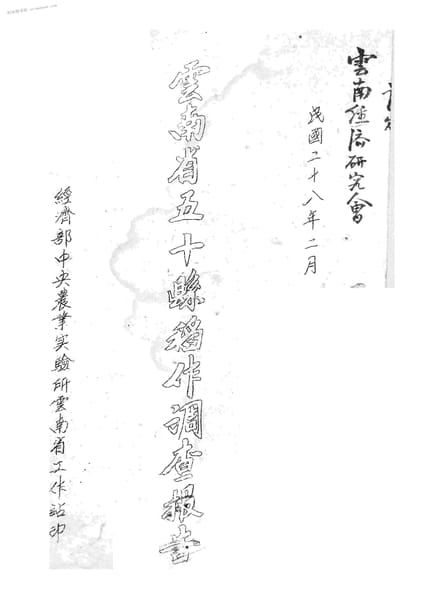 雲南經济研究會
民國二十八年二月
雲南省五十縣稻作調查報告
經濟部中央農業实驗所雲南省工作站印